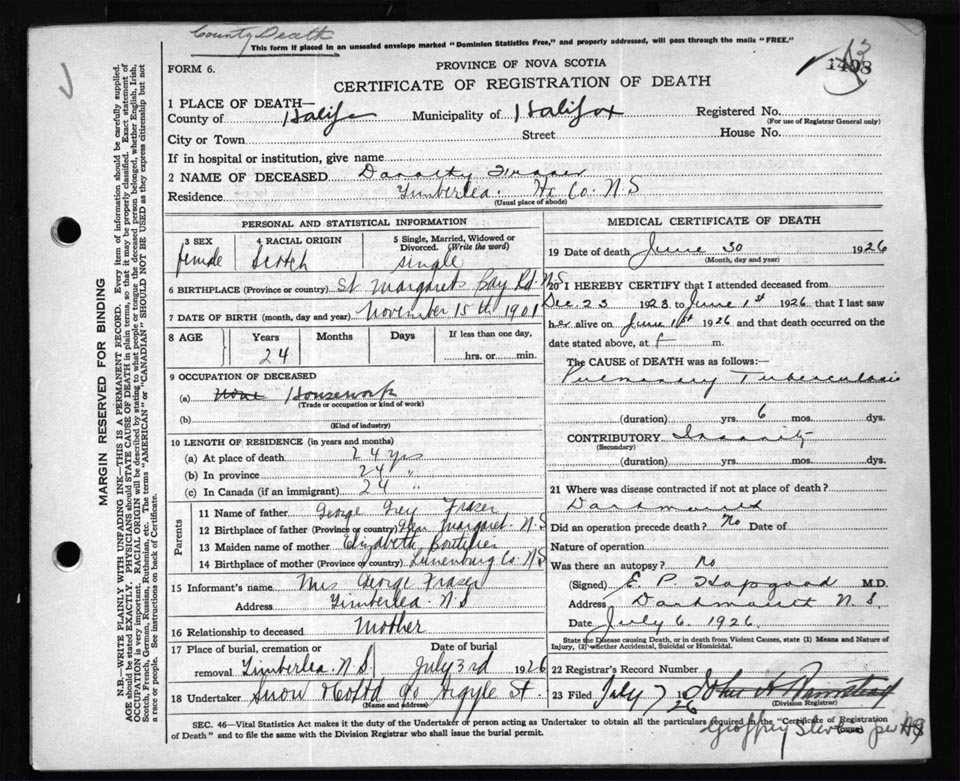 County Death
This form if placed in an unsealed envelope marked "Dominion Statistics Free," and properly addressed, will pass through the mails "FREE."
FORM 6.
PROVINCE OF NOVA SCOTIA
1498
CERTIFICATE OF REGISTRATION OF DEATH
1 PLACE OF DEATH—
County of Halifax Municipality of Halifax Registered No.
(For use of Registrar General only)
City or Town Street House No.
If in hospital or institution, give name
2 NAME OF DECEASED Dorothy Fraser
Residence Timberlea. Hx Co. N.S
(Usual place of abode)
PERSONAL AND STATISTICAL INFORMATION
3 SEX female
4 RACIAL ORIGIN Scotch
5 Single, Married, Widowed or Divorced. (Write the word) single
6 BIRTHPLACE (Province or country) St. Margarets Bay Rd. N.S
7 DATE OF BIRTH (month, day and year) November 15th 1901
8 AGE Years 24 Months Days If less than one day, hrs. or min.
9 OCCUPATION OF DECEASED
(a) None Housework
(Trade or occupation or kind of work)
(b)
(Kind of industry)
10 LENGTH OF RESIDENCE (in years and months)
(a) At place of death 24 yrs
(b) In province 24 "
(c) In Canada (if an immigrant) 24 "
Parents
11 Name of father George Grey Fraser
12 Birthplace of father (Province or country) Glen Margaret. N.S
13 Maiden name of mother Elizabeth
14 Birthplace of mother (Province or country) Lunenburg Co. N.S
15 Informant's name Mrs George Fraser
Address Timberlea. N.S
16 Relationship to deceased Mother
17 Place of burial, cremation or removal Timberlea. N.S. Date of burial July 3rd 1926
18 Undertaker Snow & Co Argyle St.
(Name and address)
MEDICAL CERTIFICATE OF DEATH
19 Date of death June 30 1926
(Month, day and year)
20 I HEREBY CERTIFY that I attended deceased from
Dec. 23 1923 to June 1st 1926 that I last saw
her alive on June 1st 1926 and that death occurred on
date stated above, at m.
The CAUSE of DEATH was as follows:—
Pulmonary Tuberculosis
(duration) yrs. 6 mos. dys.
CONTRIBUTORY Insanity
(Secondary)
(duration) yrs. mos. dys.
21 Where was disease contracted if not at place of death?
Dartmouth
Did an operation precede death? No Date of
Nature of operation
Was there an autopsy? No
(Signed) E. P. M.D.
Address Dartmouth N.S.
Date July 6. 1926.
State the Disease causing Death, or in death from Violent Causes, state (1) Means and Nature of
Injury, (2) whether Accidental, Suicidal or Homicidal.
22 Registrar's Record Number
23 Filed July 7 1926 John A
(Division Registrar)
SEC. 46—Vital Statistics Act makes it the duty of the Undertaker or person acting as Undertaker to obtain all the particulars required in the "Certificate of Registration
of Death" and to file the same with the Division Registrar who shall issue the burial permit.
Geoffrey per
MARGIN RESERVED FOR BINDING
N.B.—WRITE PLAINLY WITH UNFADING INK—THIS IS A PERMANENT RECORD. Every item of information should be carefully supplied.
AGE should be stated EXACTLY. PHYSICIANS should STATE CAUSE OF DEATH in plain terms, so that it may be properly classified. Exact statement of
OCCUPATION is very important. RACIAL ORIGIN will be described by stating to what people or tongue the deceased person belonged, whether English, Irish,
Scotch, French, German, Russian, Ruthenian, etc. The terms "AMERICAN" or "CANADIAN" SHOULD NOT BE USED as they express citizenship but not
a race or people. See instructions on back of Certificate.